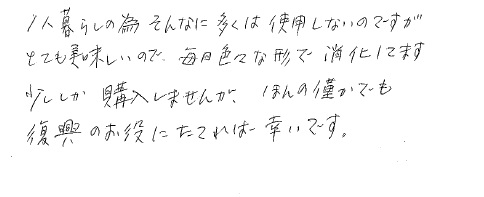 1人暮らしの為そんなに多くは使用しないのですが
とても美味しいので、毎日色々な形で消化してます
少ししか購入しませんが、ほんの僅かでも
復興のお役にたてれば幸いです。